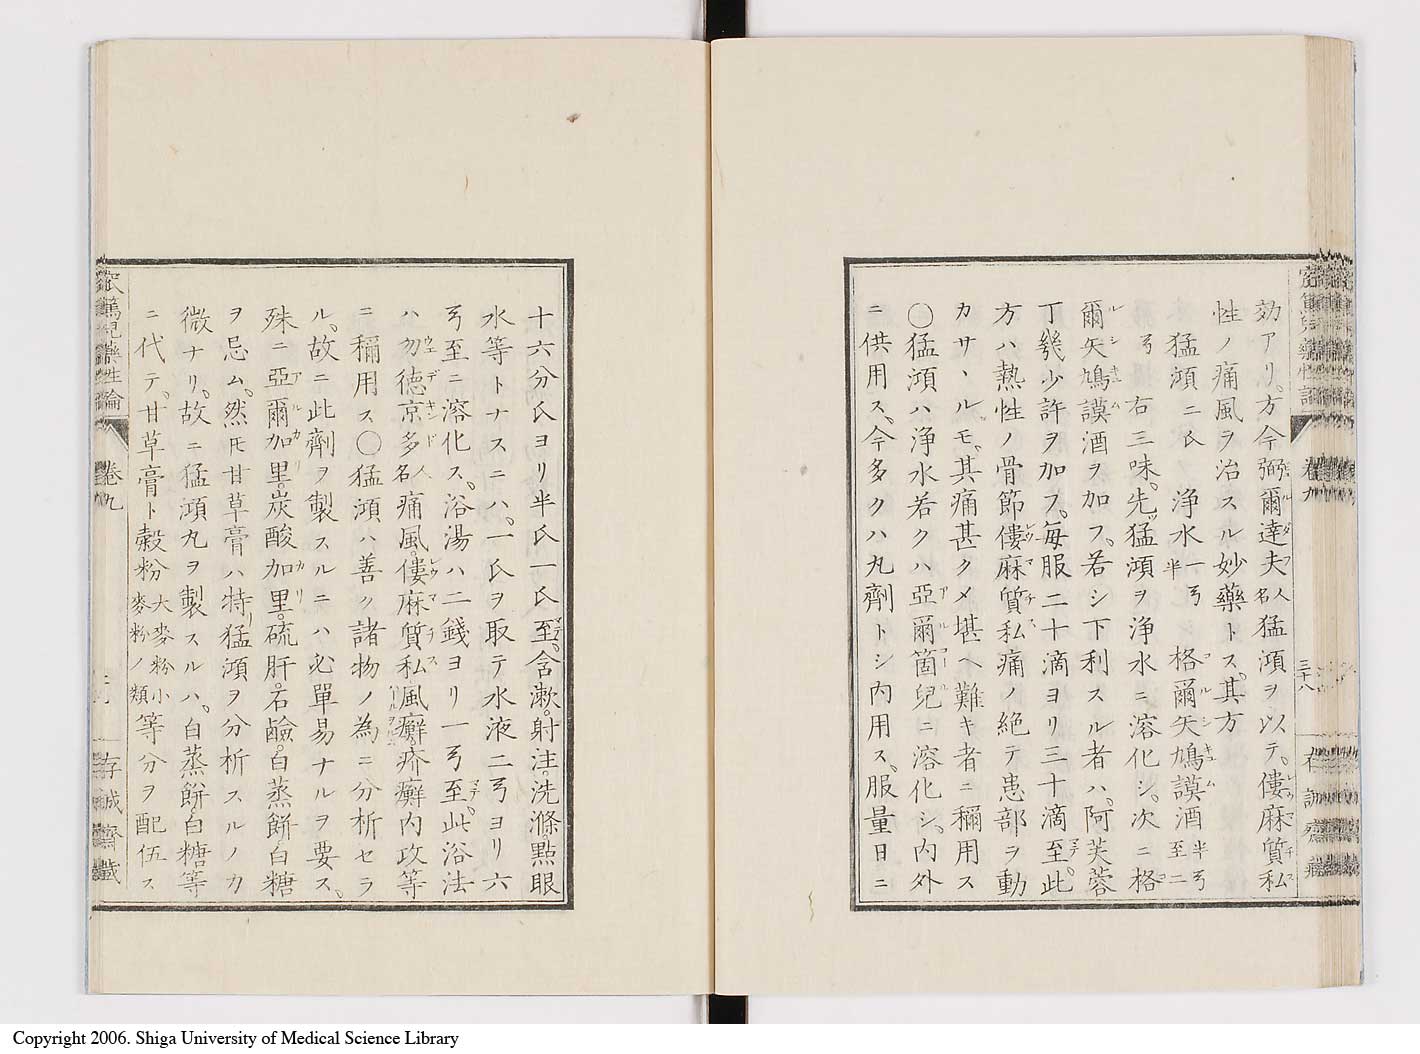 効アリ。方今弼爾達夫人名猛澒ヲ以テ。僂麻質私
性ノ痛風ヲ治スル妙藥トス。其方
猛澒二氏 淨水一弓半 格爾矢鳩謨酒半弓至二
弓 右三味。先ッ猛澒ヲ淨水ニ溶化シ。次ニ格
爾矢鳩謨酒ヲ加フ。若シ下利スル者ハ。阿芙蓉
丁幾少許ヲ加フ。毎服二十滴ヨリ三十滴至。此
方ハ熱性ノ骨節僂麻質私痛ノ絶テ患部ヲ動
カサヽルモ。其痛甚クメ堪ヘ難キ者ニ稱用ス
〇猛澒ハ淨水若クハ亞爾箇兒ニ溶化シ。内外
ニ供用ス。今多クハ丸劑トシ内用ス。服量日ニ
三十八
十六分氏ヨリ半氏一氏至。含漱。射注。洗滌。點眼
水等トナスニハ。一氏ヲ取テ水液二弓ヨリ六
弓至ニ溶化ス。浴湯ハ二錢ヨリ一弓至。此浴法
ハ勿徳京多人名痛風。僂麻質私風癬。疥癬内攻等
ニ稱用ス〇猛澒ハ善ク諸物ノ為ニ分析セラ
ル。故ニ此劑ヲ製スルニハ必單易ナルヲ要ス。
殊ニ亞爾加里。炭酸加里。硫肝。石鹸。白蒸餅。白糖
ヲ忌ム。然モ甘草膏ハ特リ猛澒ヲ分析スルノカ
微ナリ。故ニ猛澒丸ヲ製スルハ。白蒸餅白糖等
ニ代テ。甘草膏ト穀粉大麥粉小麥粉ノ類等分ヲ配伍ス
篤兒藥性論
卷九
存誠齋藏
Copyright 2006. Shiga University of Medical Science Library